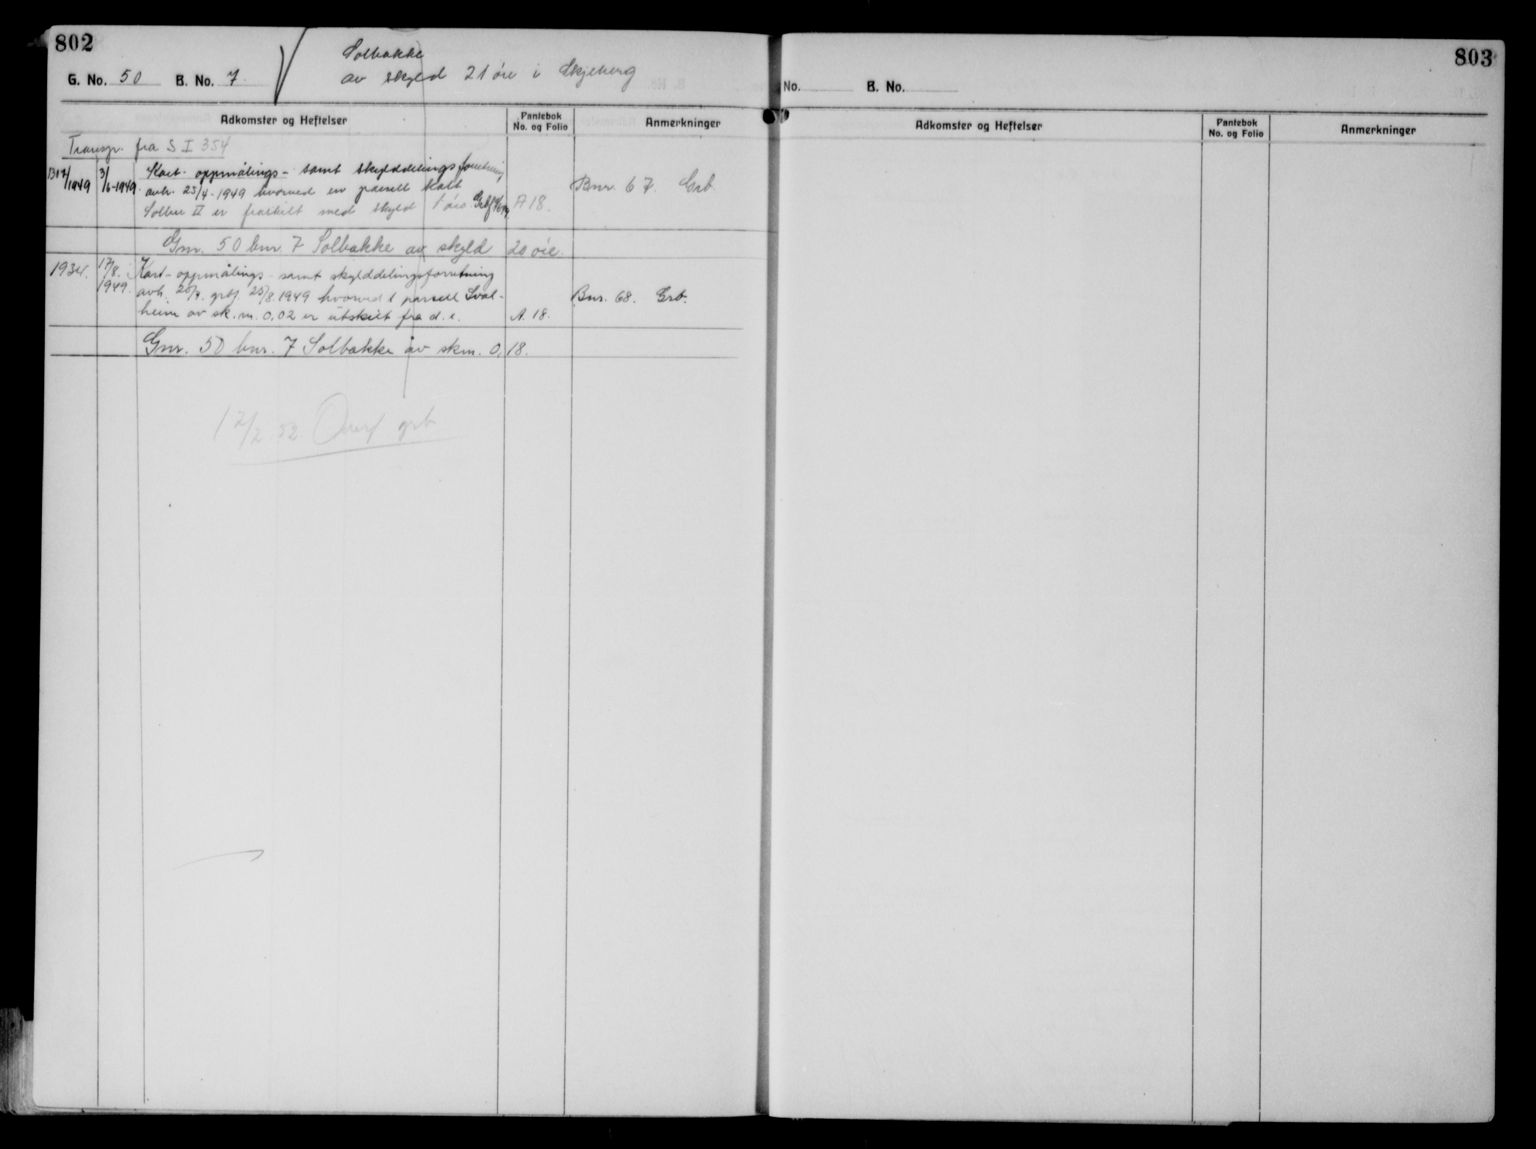 802
Solbakke
G. No. 50 B. No. 7
av skyld 21 øre i Skjeberg
Adkomster og Heftelser
Pantebok
No. og Folio
Anmerkninger
Transp. fra S I 354
1317/1949 3/6-1949 Kart- oppmålings- samt skylddelingsforretning
avh. 23/4-1949 hvorved en parsell kalt
Solbu II er fraskilt med skyld 1 øre A 18.
Bnr. 67. Grb.
Gnr. 50 bnr 7 Solbakke av skyld 20 øre.
1934. 17/8. 1949. Kart- oppmålings- samt skylddelingsforretning
avh. 20/4. grbf. 25/8 1949 hvorved 1 parsell Sval-
heim av sk.m. 0,02 er utskilt fra d.e. A. 18.
Bnr. 68. Grb.
Gnr. 50 bnr. 7 Solbakke av skm. 0,18.
17/2.52. Overf grb
803
No. B. No.
Adkomster og Heftelser
Pantebok
No. og Folio
Anmerkninger